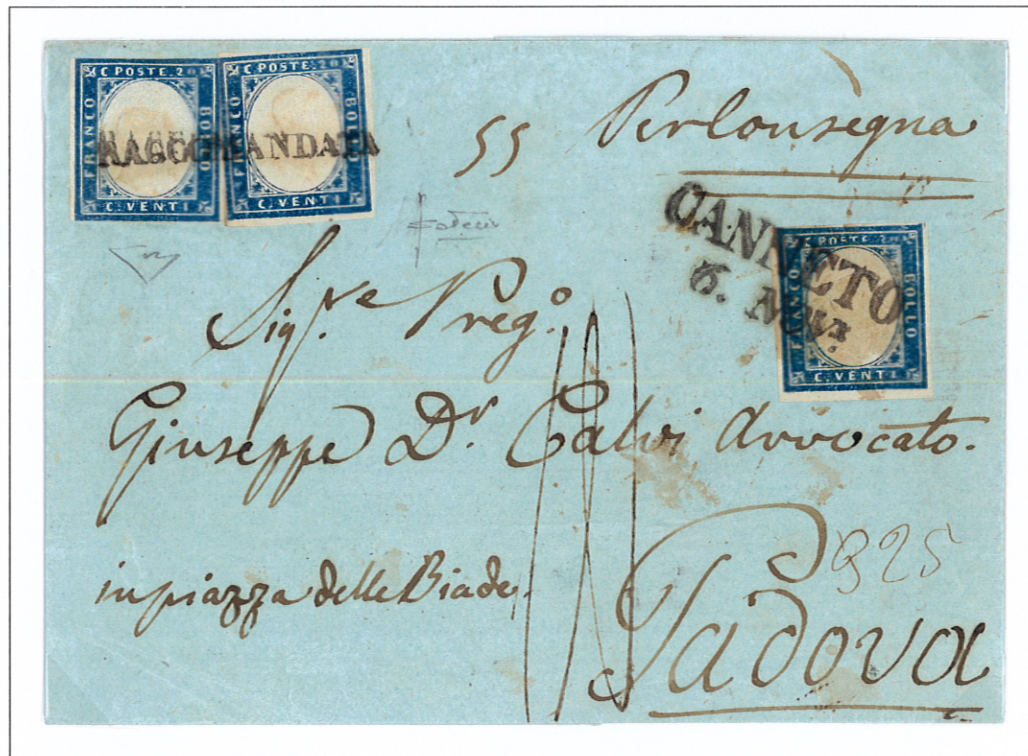 C POSTE. 20
FRANCO
BOLLO
C. VENTI
C POSTE. 20
FRANCO
BOLLO
C. VENTI
RACCOMANDATA
55
Per Consegna
CANNETO
6. Nov.
C POSTE. 20
FRANCO
BOLLO
C. VENTI
Sig.re Preg.o
Giuseppe D.r Calvi Avvocato.
in piazza delle Biade.
925
Padova